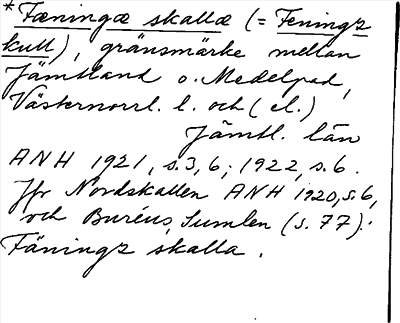 *Fæningæ skallæ (= Fenings
kull), gränsmärke mellan
Jämtland o. Medelpad,
Västernorrl. l. och (el.)
Jämtl. län
ANH 1921, s. 3, 6; 1922, s. 6.
Jfr Nordskallen ANH 1920, s. 6,
och Buréus, Sumlen (s. 77):
Fånings skalla.